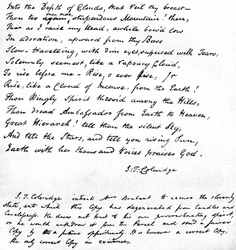 Into the Depth of Clouds, that veil thy breast—
Thou too again, stupendous Mountain! thou,
That as I raise my head, awhile bow'd low
In adoration, upward from thy Base
Slow-travelling with dim eyes suffused with Tears,
Solemnly seemest, like a vapoury Cloud,
To rise before me — Rise, O ever rise,
Rise, like a Cloud of Incense, from the Earth!
Thou Kingly Spirit throned among the Hills,
Thou dread Ambassador from Earth to Heaven,
Great Hierarch! tell thou the silent Sky,
And tell the Stars, and tell yon rising Sun,
Earth with her thousand Voices praises God.
S. T. Coleridge
S. T. Coleridge Mr
state, into which the Copy has degenerated from
does not but to his own
he
Copy by a future opportunity.
the only correct Copy in existence.